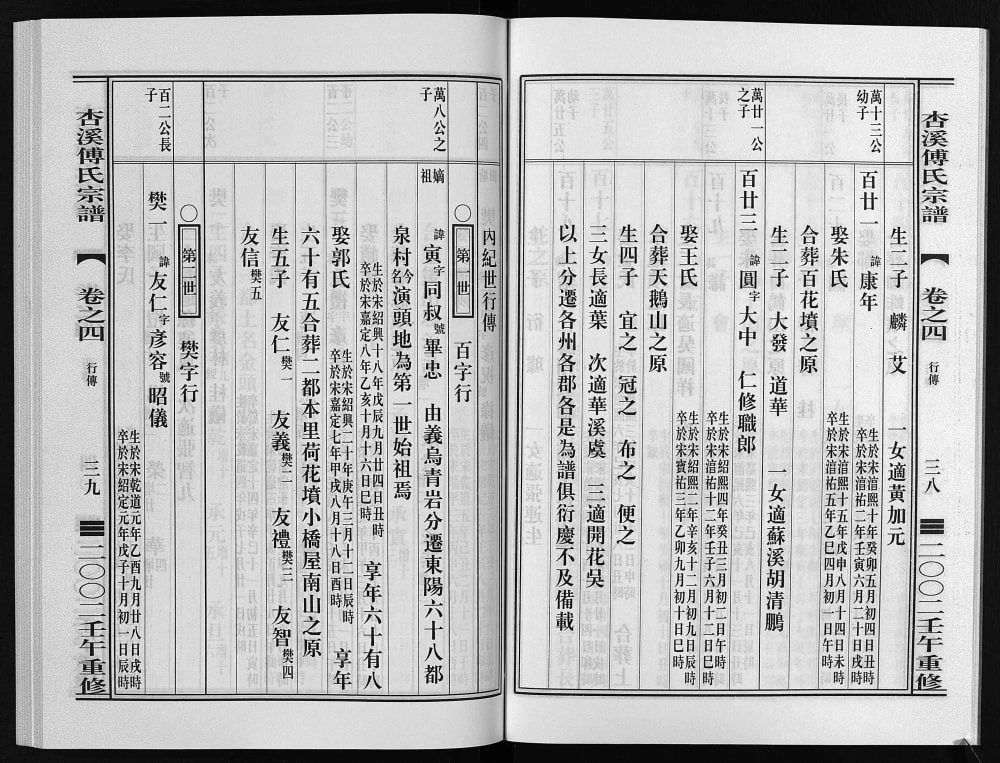 杏溪傅氏宗譜 【 卷之四 行傳 三八 二〇〇二壬午重修
生二子 麟 艾 一女適黃加元
萬十三公幼子
百廿一 諱康年
生於宋淳熙十年癸卯五月初四日丑時
卒於宋淳祐二年壬寅六月二十日時
娶朱氏
生於宋淳熙十五年戊申八月十四日未時
卒於宋淳祐五年乙巳四月初十日午時
合葬百花墳之原
生二子 大發 道華 一女適蘇溪胡清鵬
萬廿一公之子
百廿三 諱圓字大中 仁修職郎
生於宋紹熙四年癸丑三月初二日辰時
卒於宋淳祐十二年壬子六月十二日巳時
娶王氏
生於宋紹熙二年辛亥十二月初九日戌時
卒於宋寶祐三年乙卯九月初十日巳時
合葬天鵝山之原
生四子 宜之 冠之 布之 便之
三女長適葉 次適華溪虞 三適開花吳
以上分遷各州各郡各是為譜俱衍慶不及備載
內紀世行傳
〇 第一世 百字行
萬八公之子
嫡祖
諱寅字同叔號畢忠 由義烏青岩分遷東陽六十八都
泉村今名演頭地為第一世始祖焉
生於宋紹興十八年戊辰九月廿四日丑時
卒於宋嘉定八年乙亥十月十六日巳時
享年六十有八
娶郭氏
生於宋紹興二十年庚午三月十二日辰時
卒於宋嘉定七年甲戌八月十八日酉時
享年
六十有五合葬二都本里荷花墳小橋屋南山之原
生五子 友仁樊一 友義樊二 友禮樊三 友智樊四
友信樊五
〇 第二世 樊字行
百二公長子
樊一 諱友仁字彥容號昭儀
生於宋乾道元年乙酉九月廿八日戌時
卒於宋紹定元年戊子十月初一日辰時
杏溪傅氏宗譜 【 卷之四 行傳 三九 二〇〇二壬午重修